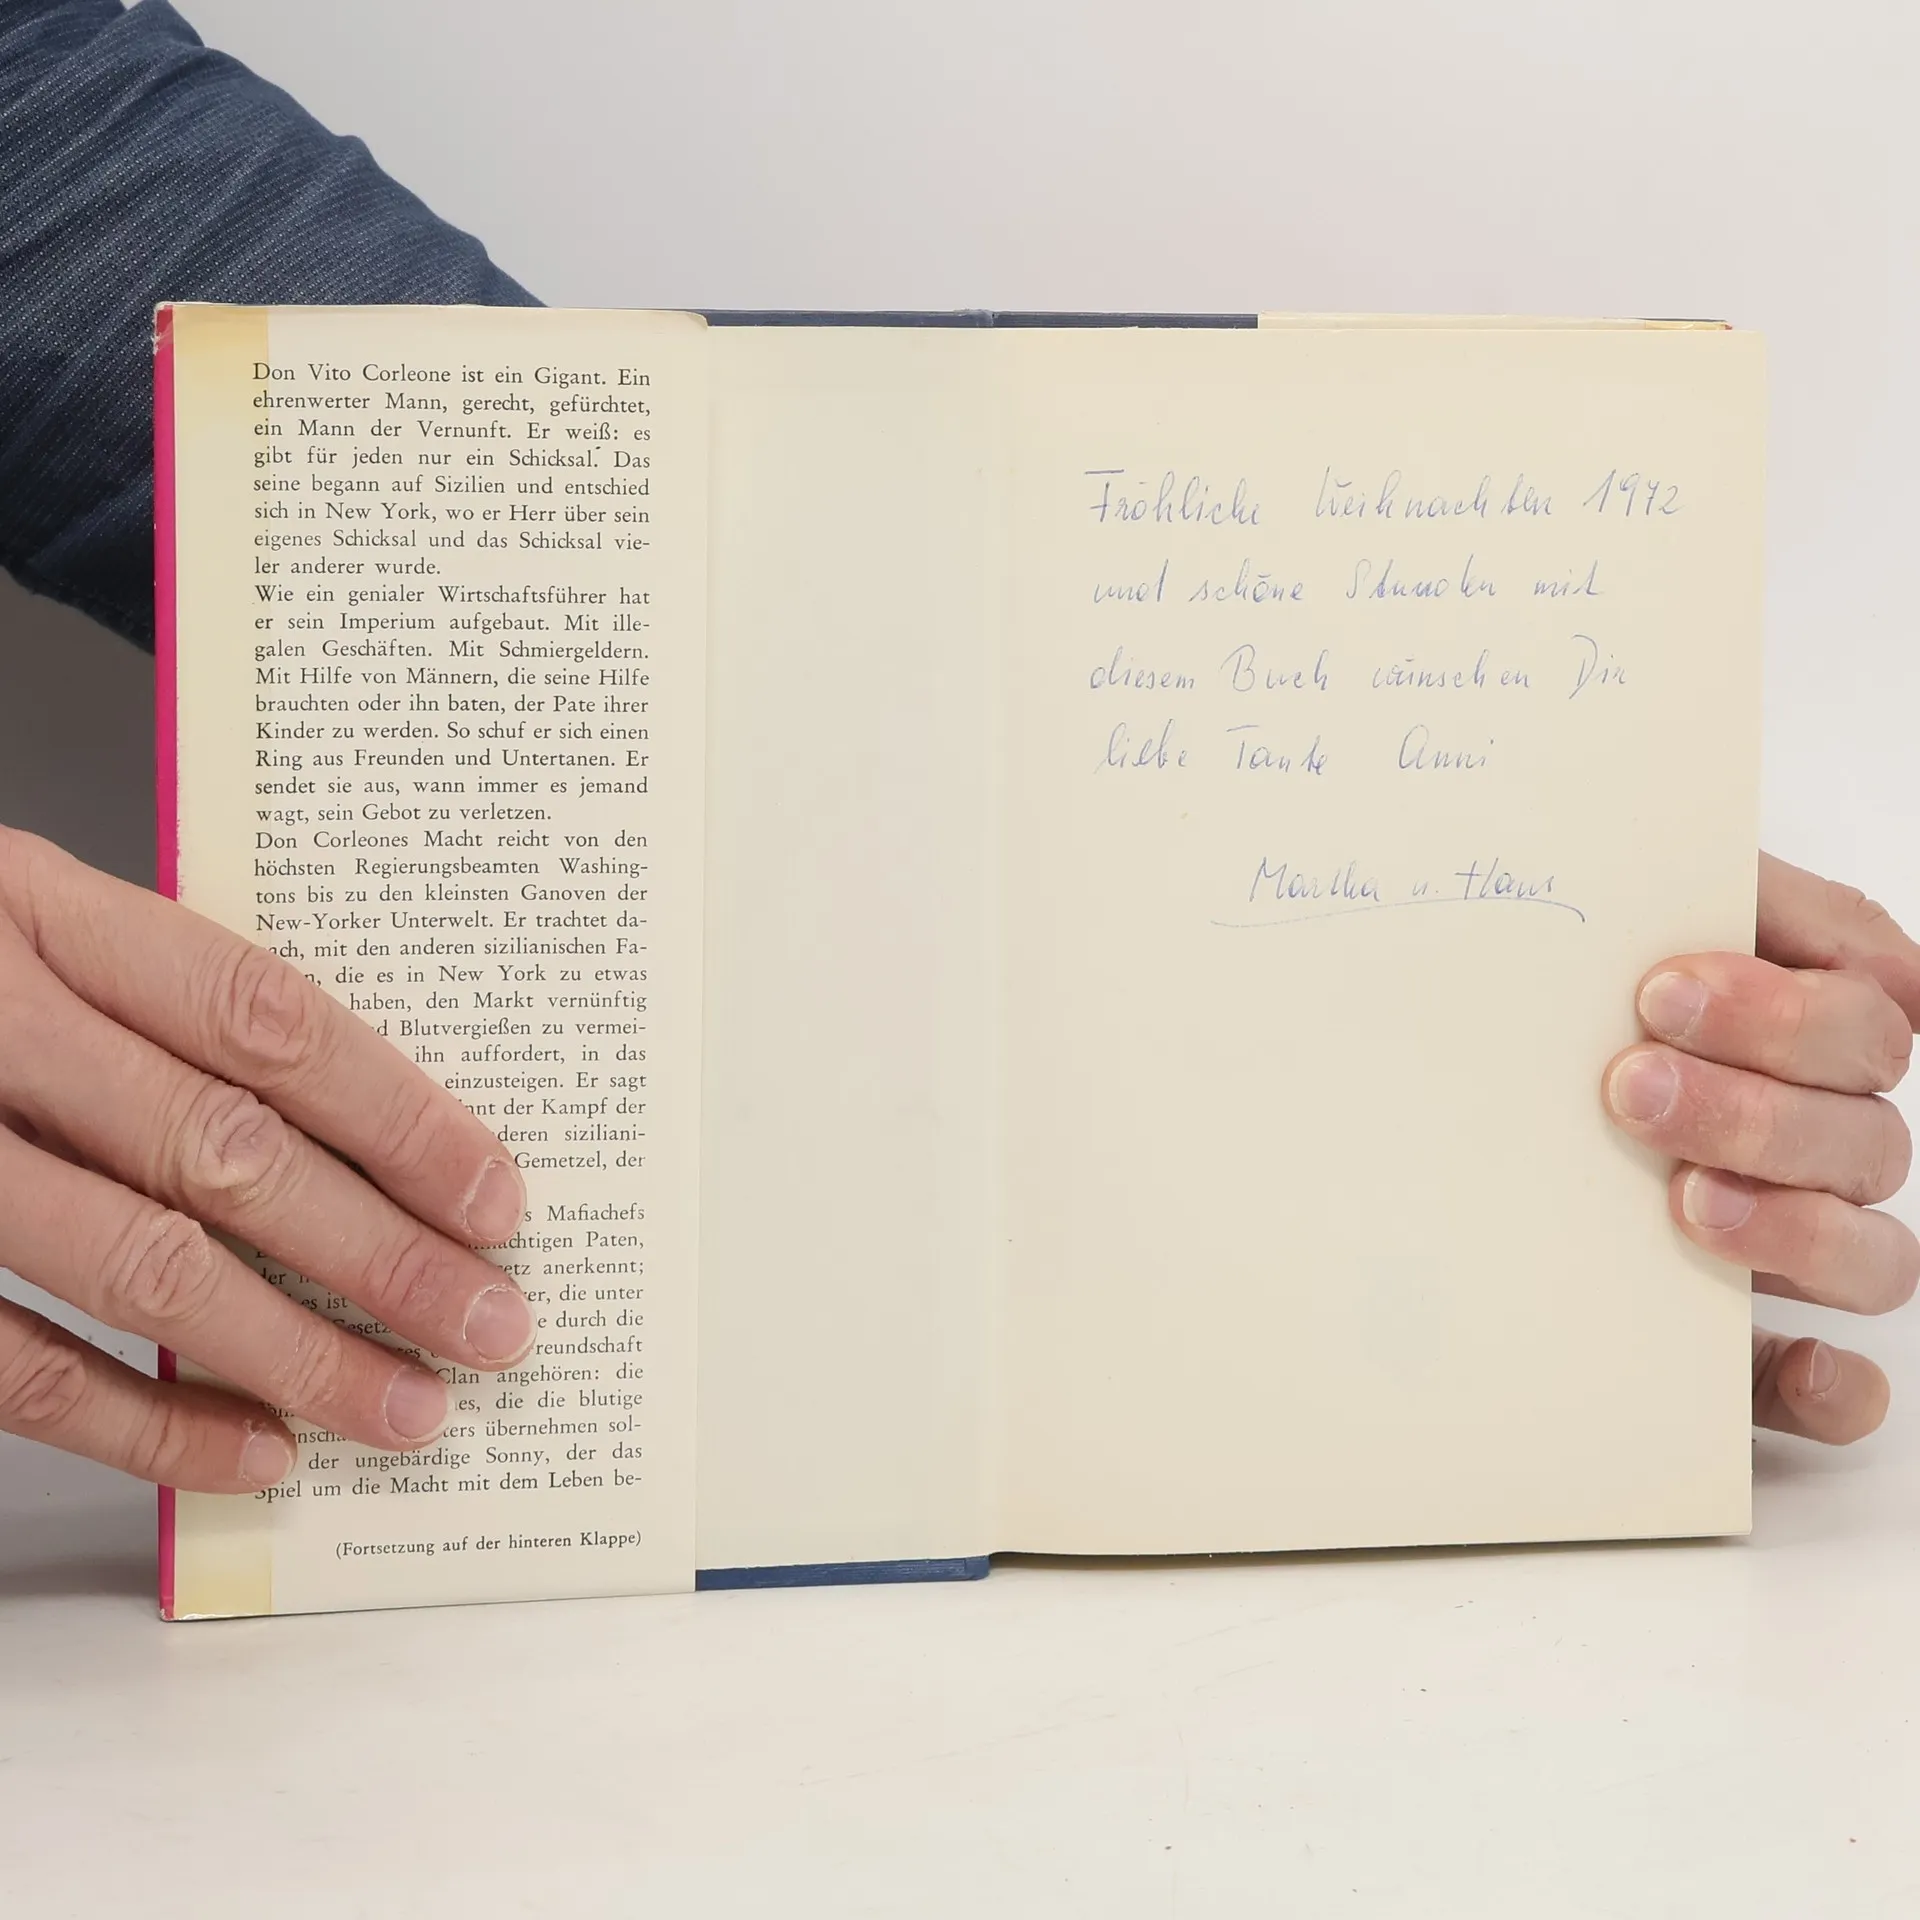 Don Vito Corleone ist ein Gigant. Ein
ehrenwerter Mann, gerecht, gefürchtet,
ein Mann der Vernunft. Er weiß: es
gibt für jeden nur ein Schicksal. Das
seine begann auf Sizilien und entschied
sich in New York, wo er Herr über sein
eigenes Schicksal und das Schicksal vie-
ler anderer wurde.
Wie ein genialer Wirtschaftsführer hat
er sein Imperium aufgebaut. Mit ille-
galen Geschäften. Mit Schmiergeldern.
Mit Hilfe von Männern, die seine Hilfe
brauchten oder ihn baten, der Pate ihrer
Kinder zu werden. So schuf er sich einen
Ring aus Freunden und Untertanen. Er
sendet sie aus, wann immer es jemand
wagt, sein Gebot zu verletzen.
Don Corleones Macht reicht von den
höchsten Regierungsbeamten Washing-
tons bis zu den kleinsten Ganoven der
New-Yorker Unterwelt. Er trachtet da-
mit den anderen sizilianischen Fa-
die es in New York zu etwas
haben, den Markt vernünftig
Blutvergießen zu vermei-
ihn auffordert, in das
einzusteigen. Er sagt
der Kampf der
siziliani-
Gemetzel, der
Mafiachefs
Paten,
anerkennt;
die unter
durch die
Clan angehören: die
die die blutige
übernehmen sol-
der ungebärdige Sonny, der das
Spiel um die Macht mit dem Leben be-
(Fortsetzung auf der hinteren Klappe)
Fröhliche Weihnachten 1972
und schöne Stunden mit
diesem Buch wünschen Dir
liebe Tante Anni
Martha u. Hans